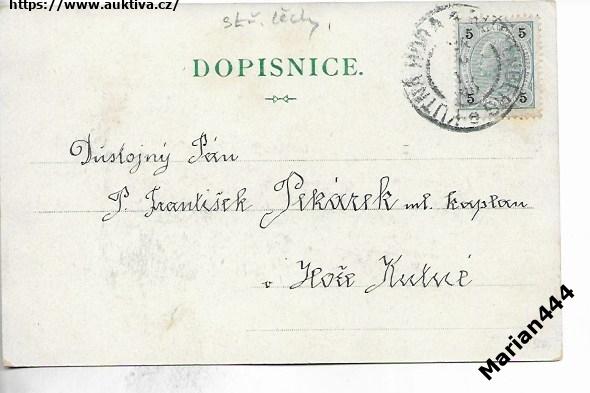 https://www.auktiva.cz/
stř. čechy
DOPISNICE.
KUTNÁ HORA
KUTTENBERG
5 5
5 5
Důstojný Pán
P. František Pekárek ml. kaplan
v Hoře Kutné
Marian444